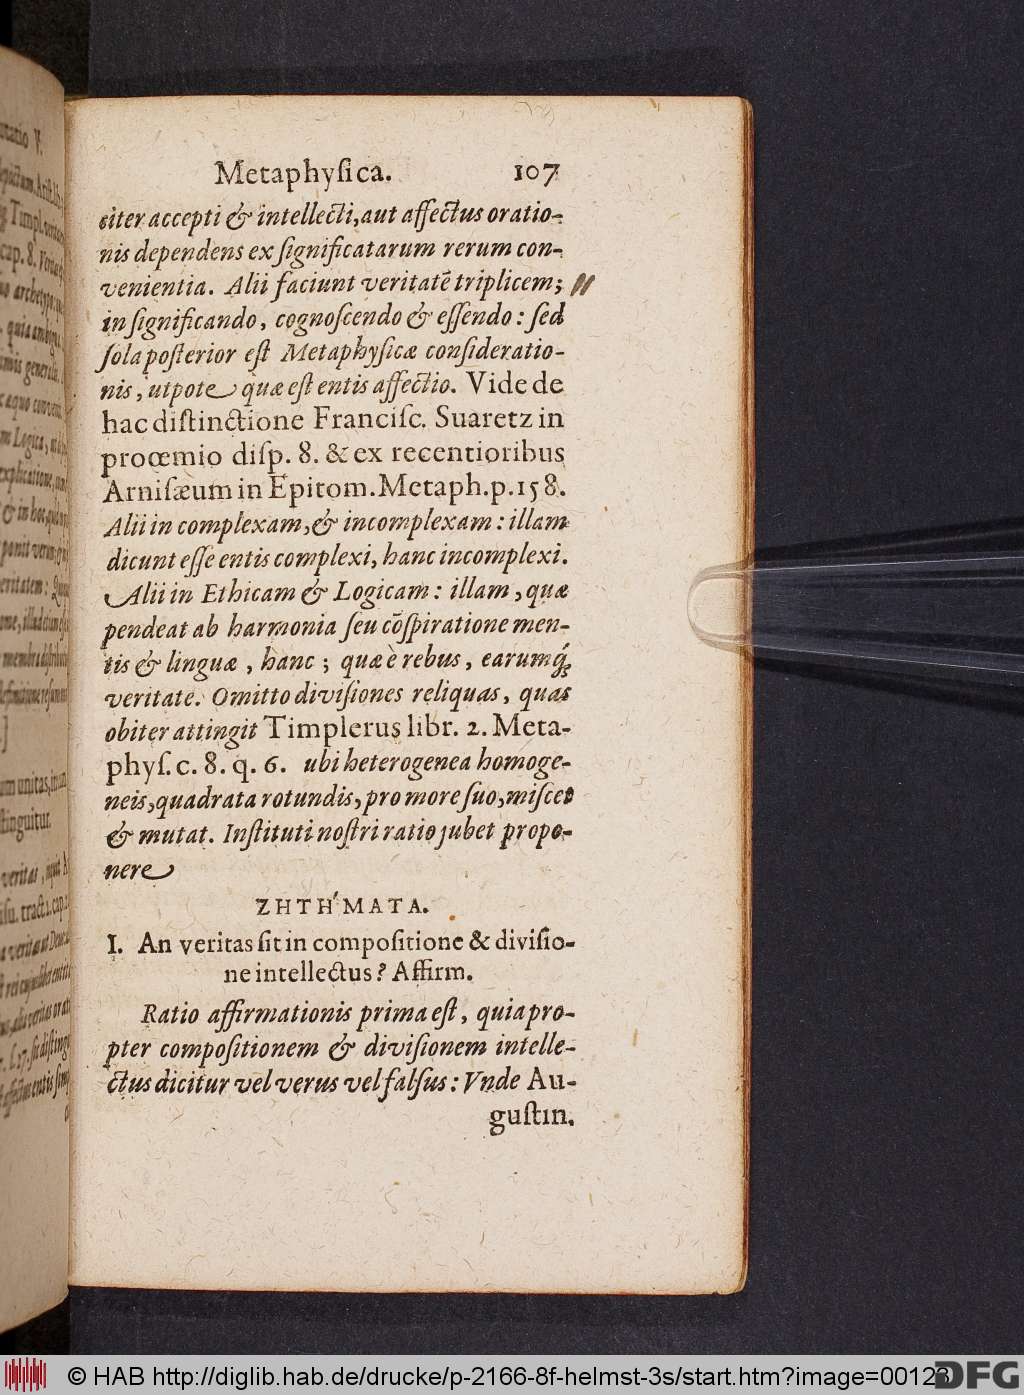 Metaphyſica. 107
citer accepti & intellecti, aut affectus oratio-
nis dependens ex ſignificatarum rerum con-
venientia. Alii faciunt veritatē triplicem;
in ſignificando, cognoſcendo & eſſendo: ſed
ſola poſterior eſt Metaphyſicæ conſideratio-
nis, utpote quæ eſt entis affectio. Vide de
hac diſtinctione Franciſc. Suaretz in
proœmio diſp. 8. & ex recentioribus
Arniſæum in Epitom. Metaph. p. 158.
Alii in complexam, & incomplexam: illam
dicunt eſſe entis complexi, hanc incomplexi.
Alii in Ethicam & Logicam: illam, quæ
pendeat ab harmonia ſeu cōſpiratione men-
tis & linguæ, hanc; quæ è rebus, earumq́;
veritate. Omitto diviſiones reliquas, quas
obiter attingit Timplerus libr. 2. Meta-
phyſ. c. 8. q. 6. ubi heterogenea homoge-
neis, quadrata rotundis, pro more ſuo, miſcet
& mutat. Inſtituti noſtri ratio jubet propo-
nere
ΖΗΤΉΜΑΤΑ.
I. An veritas ſit in compoſitione & diviſio-
ne intellectus? Affirm.
Ratio affirmationis prima eſt, quia pro-
pter compoſitionem & diviſionem intelle-
ctus dicitur vel verus vel falſus: Vnde Au-
guſtin.
© HAB http://diglib.hab.de/drucke/p-2166-8f-helmst-3s/start.htm?image=00123
DFG